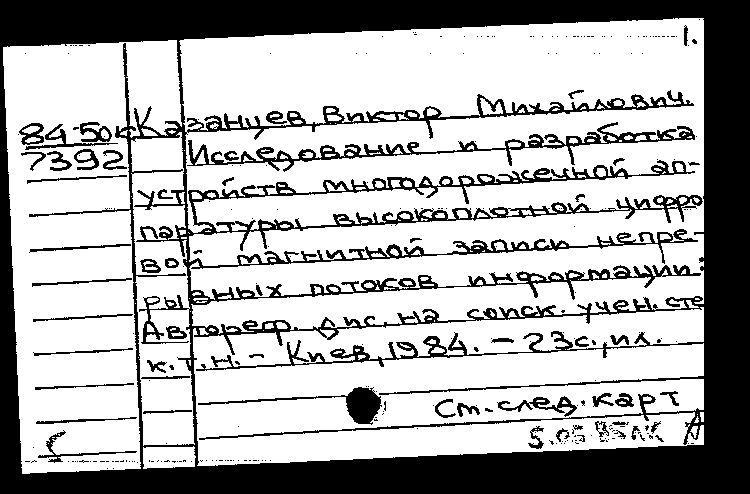 1.
84-50к Казанцев, Виктор Михайлович.
7392 Исследование и разработка
устройств многодорожечной ап-
паратуры высокоплотной цифро
вой магнитной записи непре-
рывных потоков информации:
Автореф. дис. на соиск. учен. сте
к.т.н. - Киев, 1984. - 23с., ил.
См. след. карт
5.05